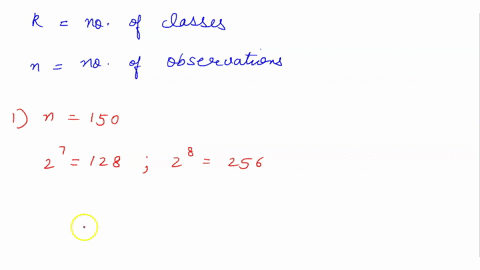 k = no. of classes
n = no. of observations
1) n = 150
2^7 = 128 ; 2^8 = 256